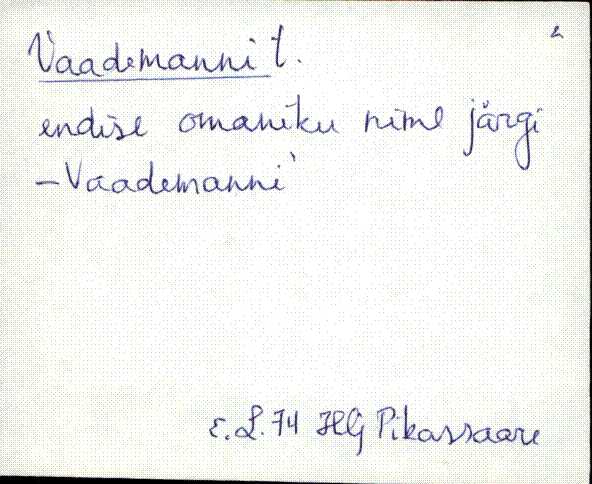 Vaademanni t.
endise omaniku nime järgi
– Vaademanni
E.L. 74 HG Pikassaare